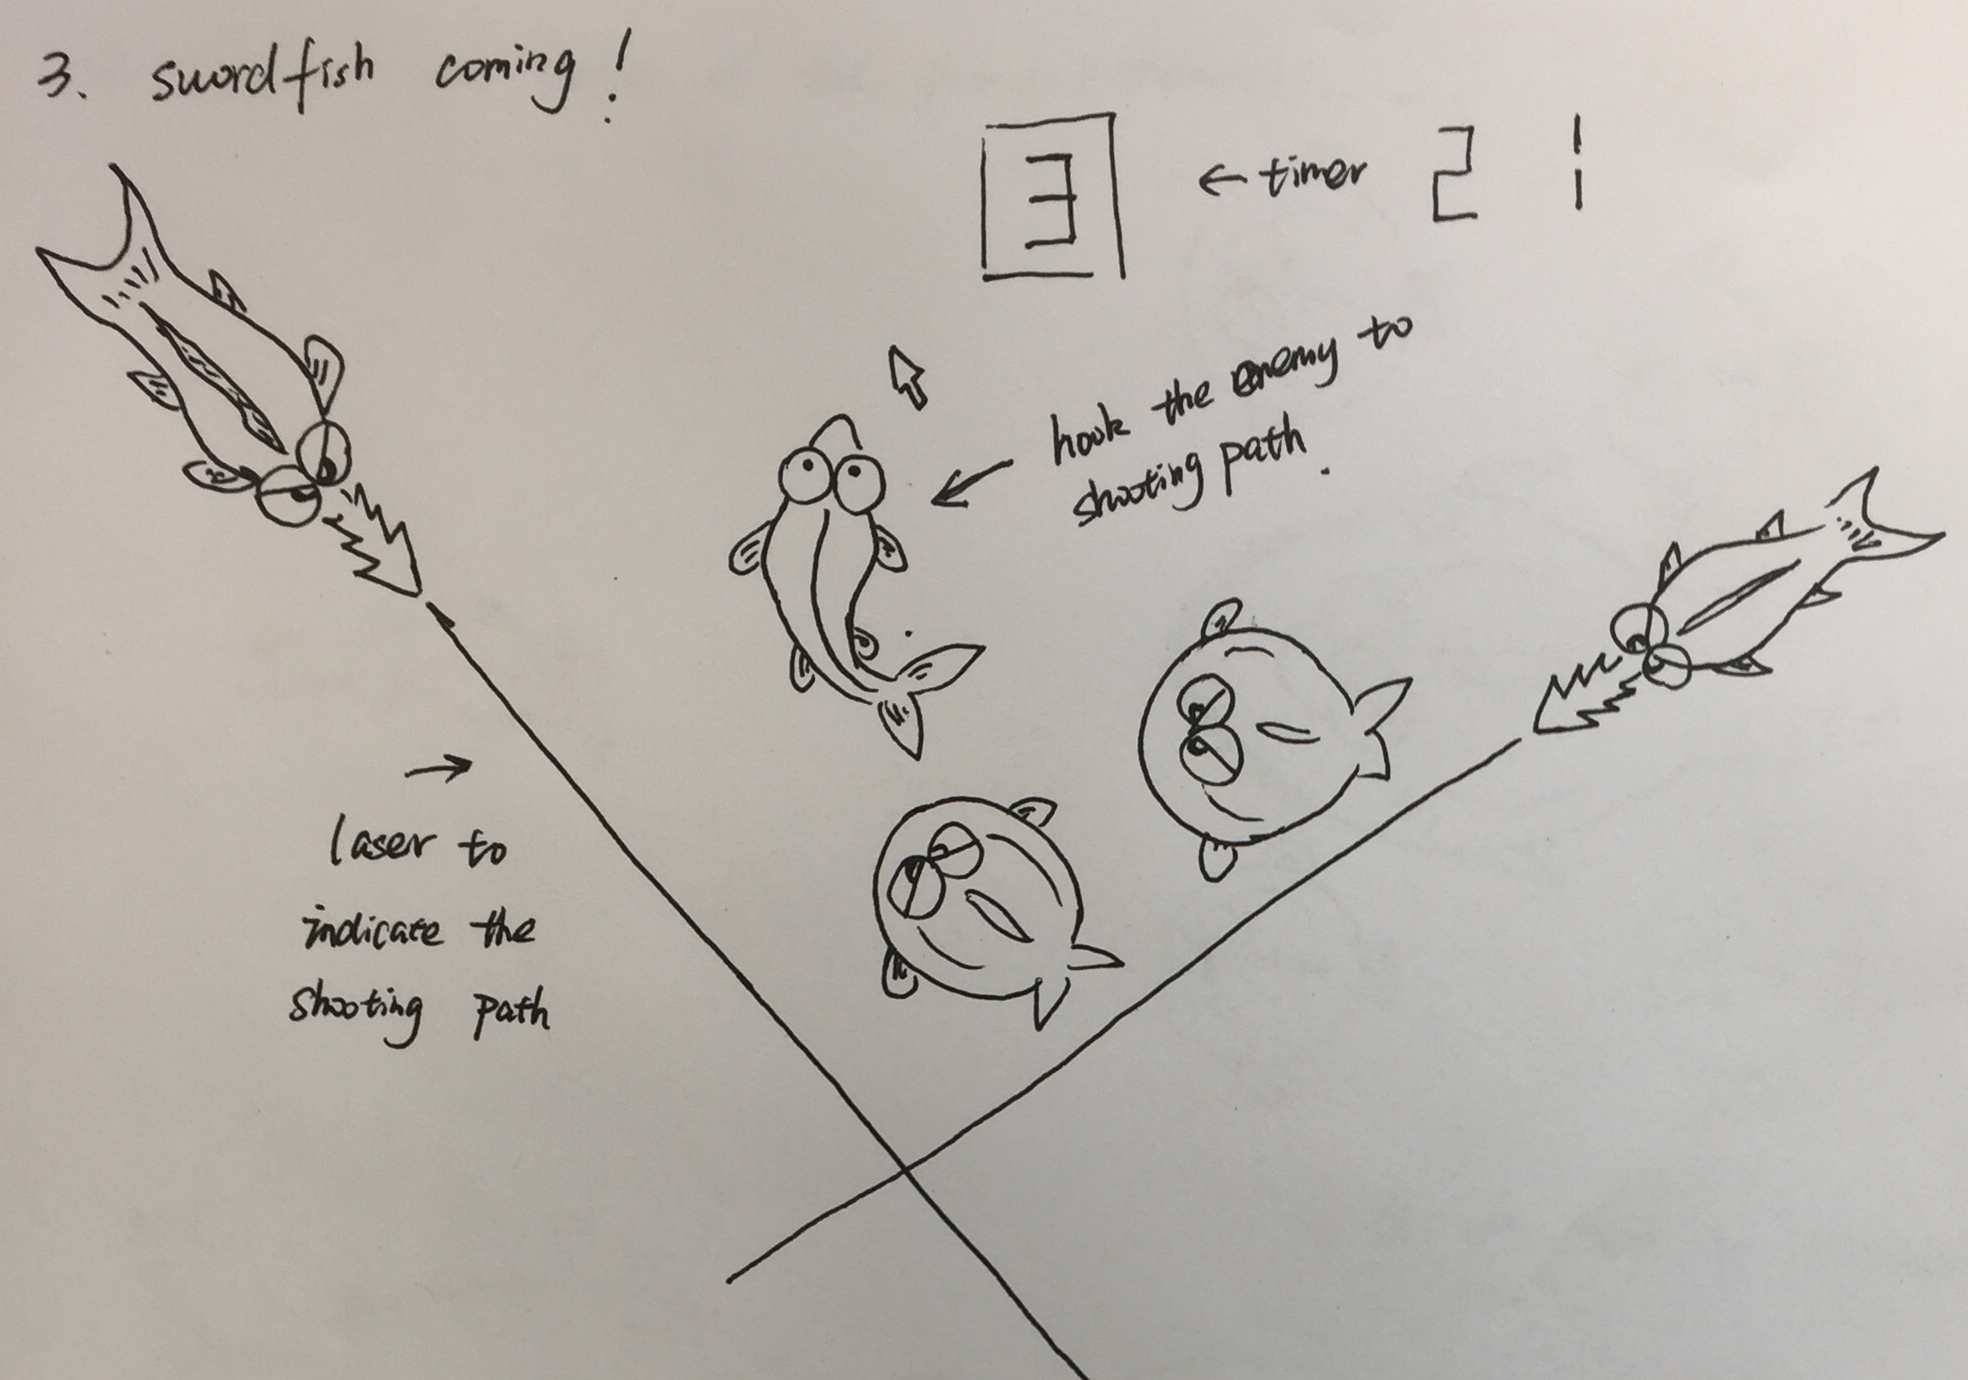 3. swordfish coming!
3 ← timer 2 1
hook the enemy to
shooting path.
laser to
indicate the
shooting path